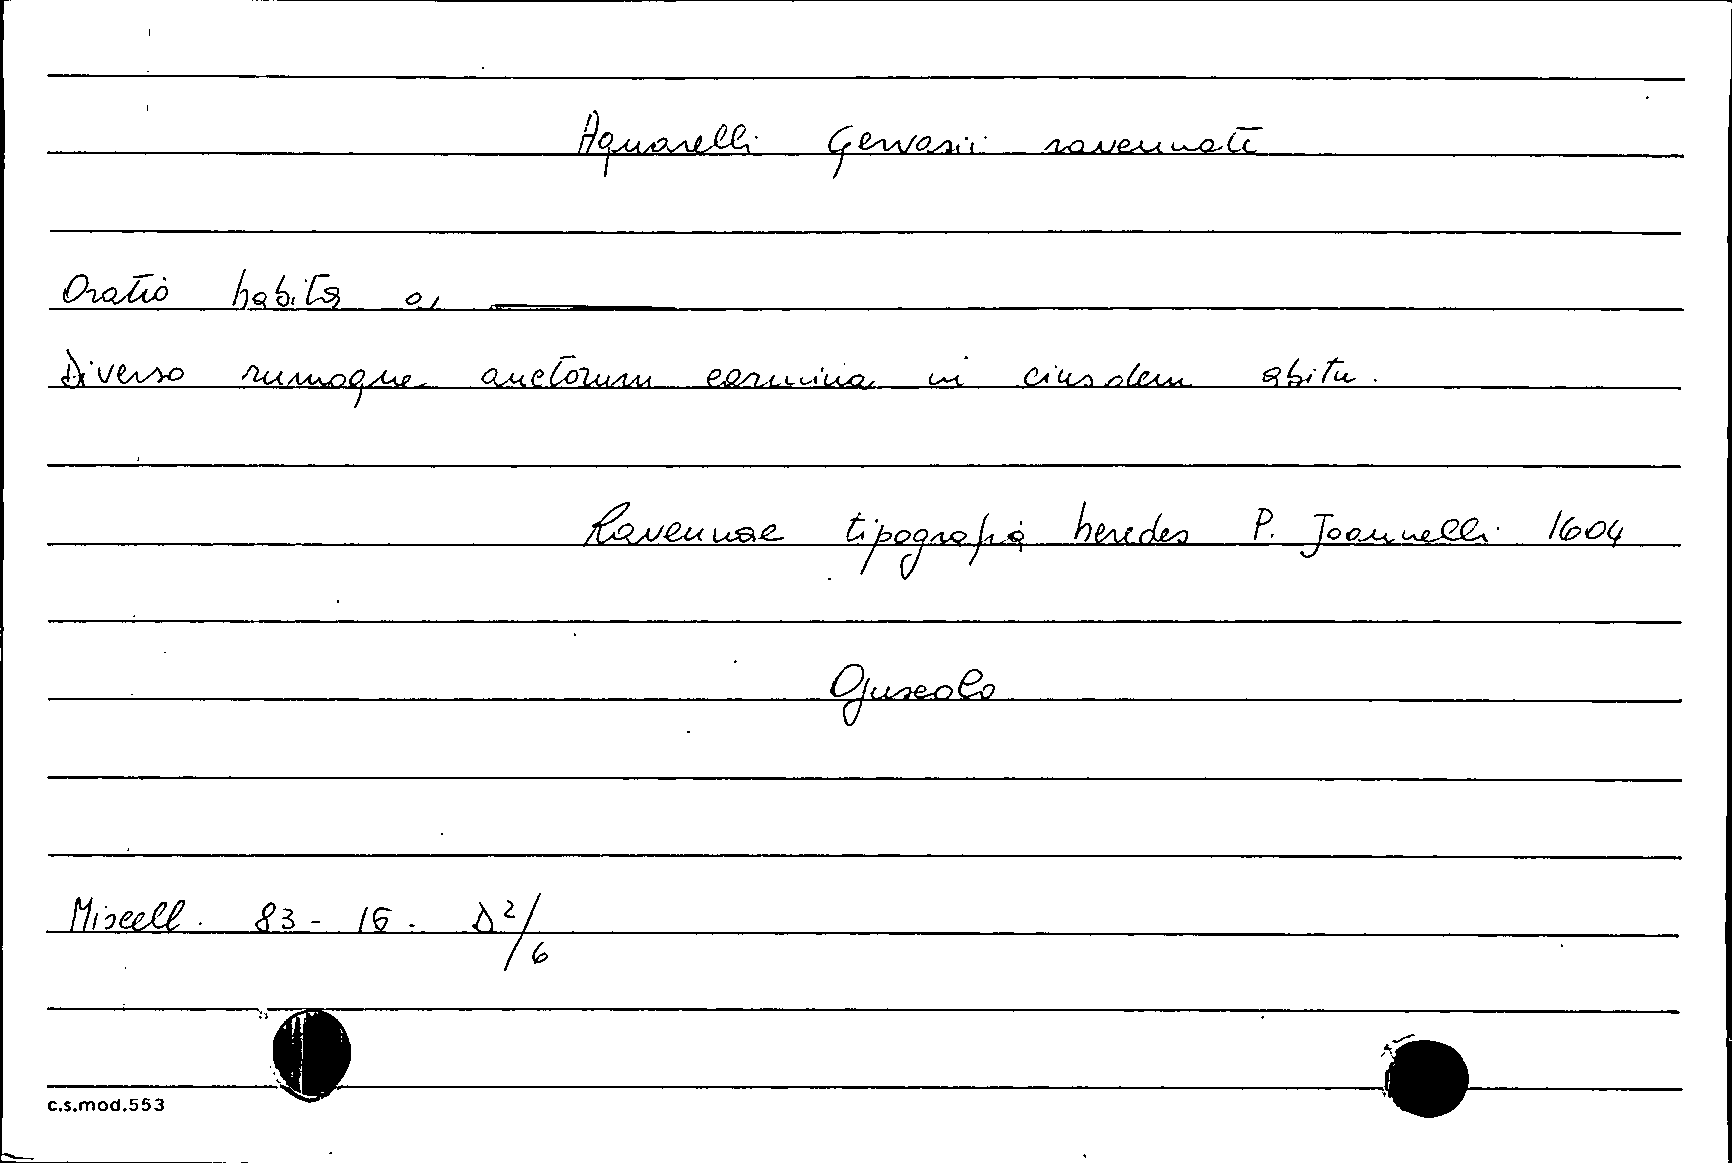 Aquarelli Gervasii ravennati
Oratio habita a,
Diverso rumoque auctorum carmina in eiusdem abitu.
Ravennae tipografia heredes P. Joannelli 1604
Opuscolo
Miscell. 83 - 16. D 2/6
c.s.mod.553